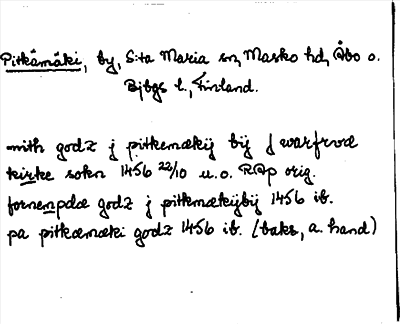 Pitkämäki, by, S:ta Maria sn, Masko hd, Åbo o.
Bjbgs l., Finland.
mith godz j pitkemækij bij j warfrvæ
kirke sokn 1456 22/10 u.o. RAp orig.
fornempdæ godz j pitkmækijbij 1456 ib.
pa pitkæmæki godz 1456 ib. (baks, a. hand)